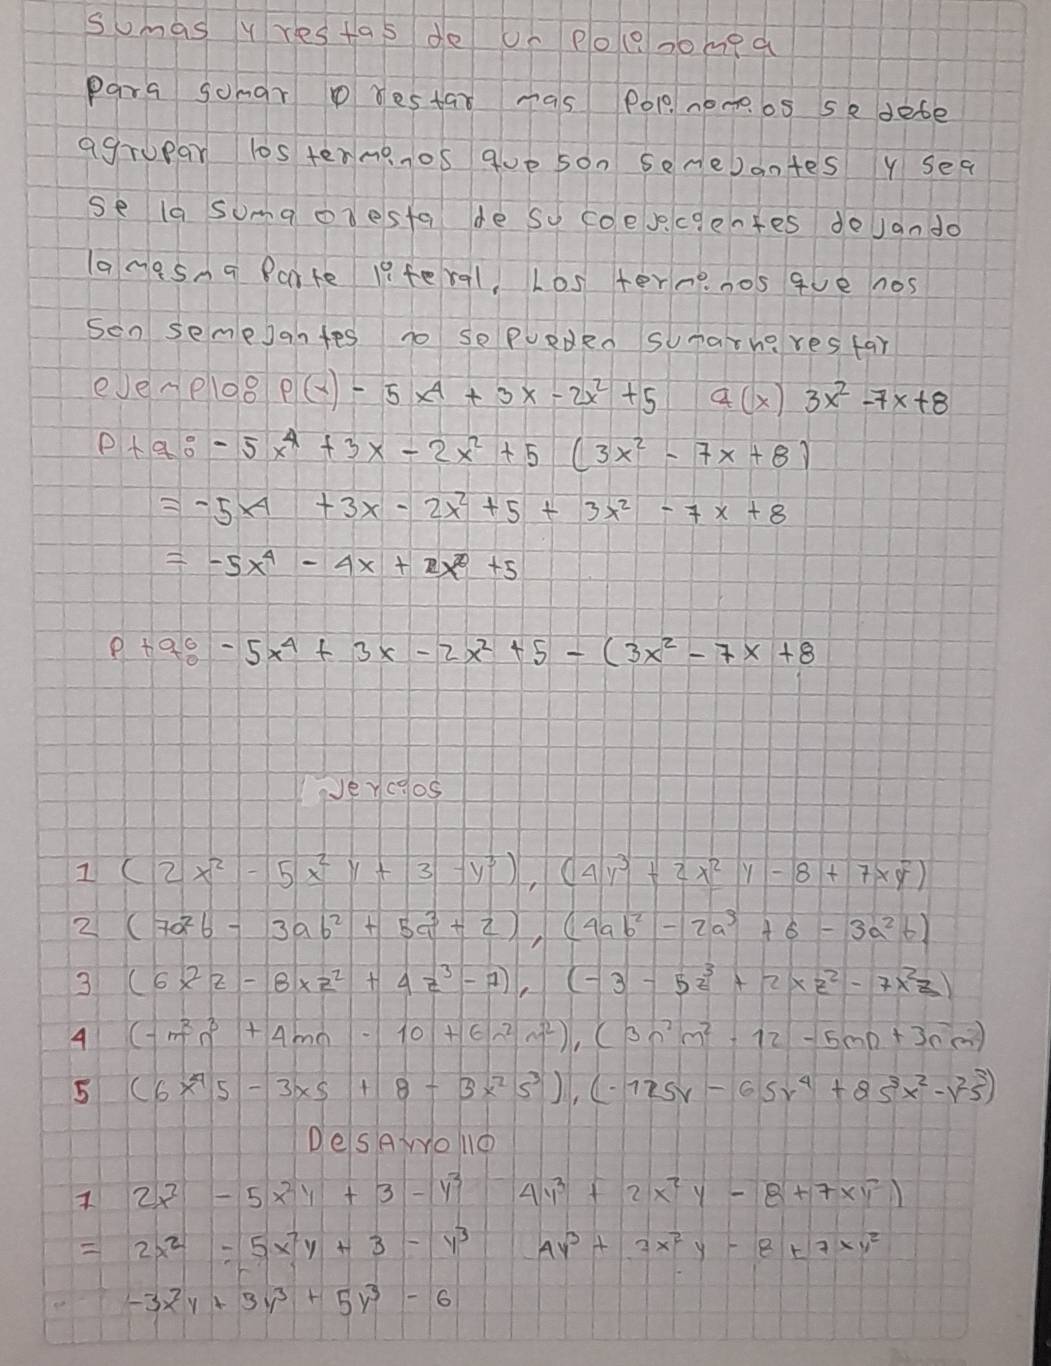 Sumas y restas de un Polinomia
Para sumar o restar mas Polinomios se debe
agrupar los terminos que son semejantes y sea
se la suma o resta de su coeficientes dejando
la misma Parte literal, Los terminos que nos
son semejantes no se pueden sumar ni restar
ejemplo: P(x) - 5x⁴ + 3x - 2x² + 5 q(x) 3x² - 7x + 8
P + q: - 5x⁴ + 3x - 2x² + 5 (3x² - 7x + 8)
= - 5x⁴ + 3x - 2x² + 5 + 3x² - 7x + 8
= - 5x⁴ - 4x + + 5
P + q: - 5x⁴ + 3x - 2x² + 5 - (3x² - 7x + 8
Jercios
1 (2x² - 5x²y + 3 - y³), (4y³ + 2x²y - 8 + 7xy²)
2 (7a²b - 3ab² + 5a³ + 2), (4ab² - 2a³ + 6 - 3a²b)
3 (6x²z - 8xz² + 4z³ - 7), (-3 - 5z³ + 2xz² - 7x²z)
4 + 4mn - 10 - 12 - 5mn
5 (6x⁴s - 3xs + 8 - 3x²s³), (-12sx - 6sx⁴ + 8s³x²
DesArrollo
1 2x² - 5x²y + 3 - y³ 4y³ + 2x²y - 8 + 7xy²)
= 2x² - 5x²y + 3 - y³ 4y³ + 2x²y - 8 + 7xy²
-3x²y + 3y³ + 5y³ - 6